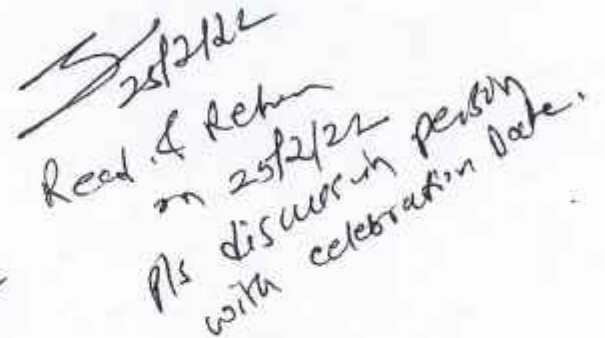 25/2/22
Read & Return
on 25/2/22
Pls discuss in person
with celebration Date.